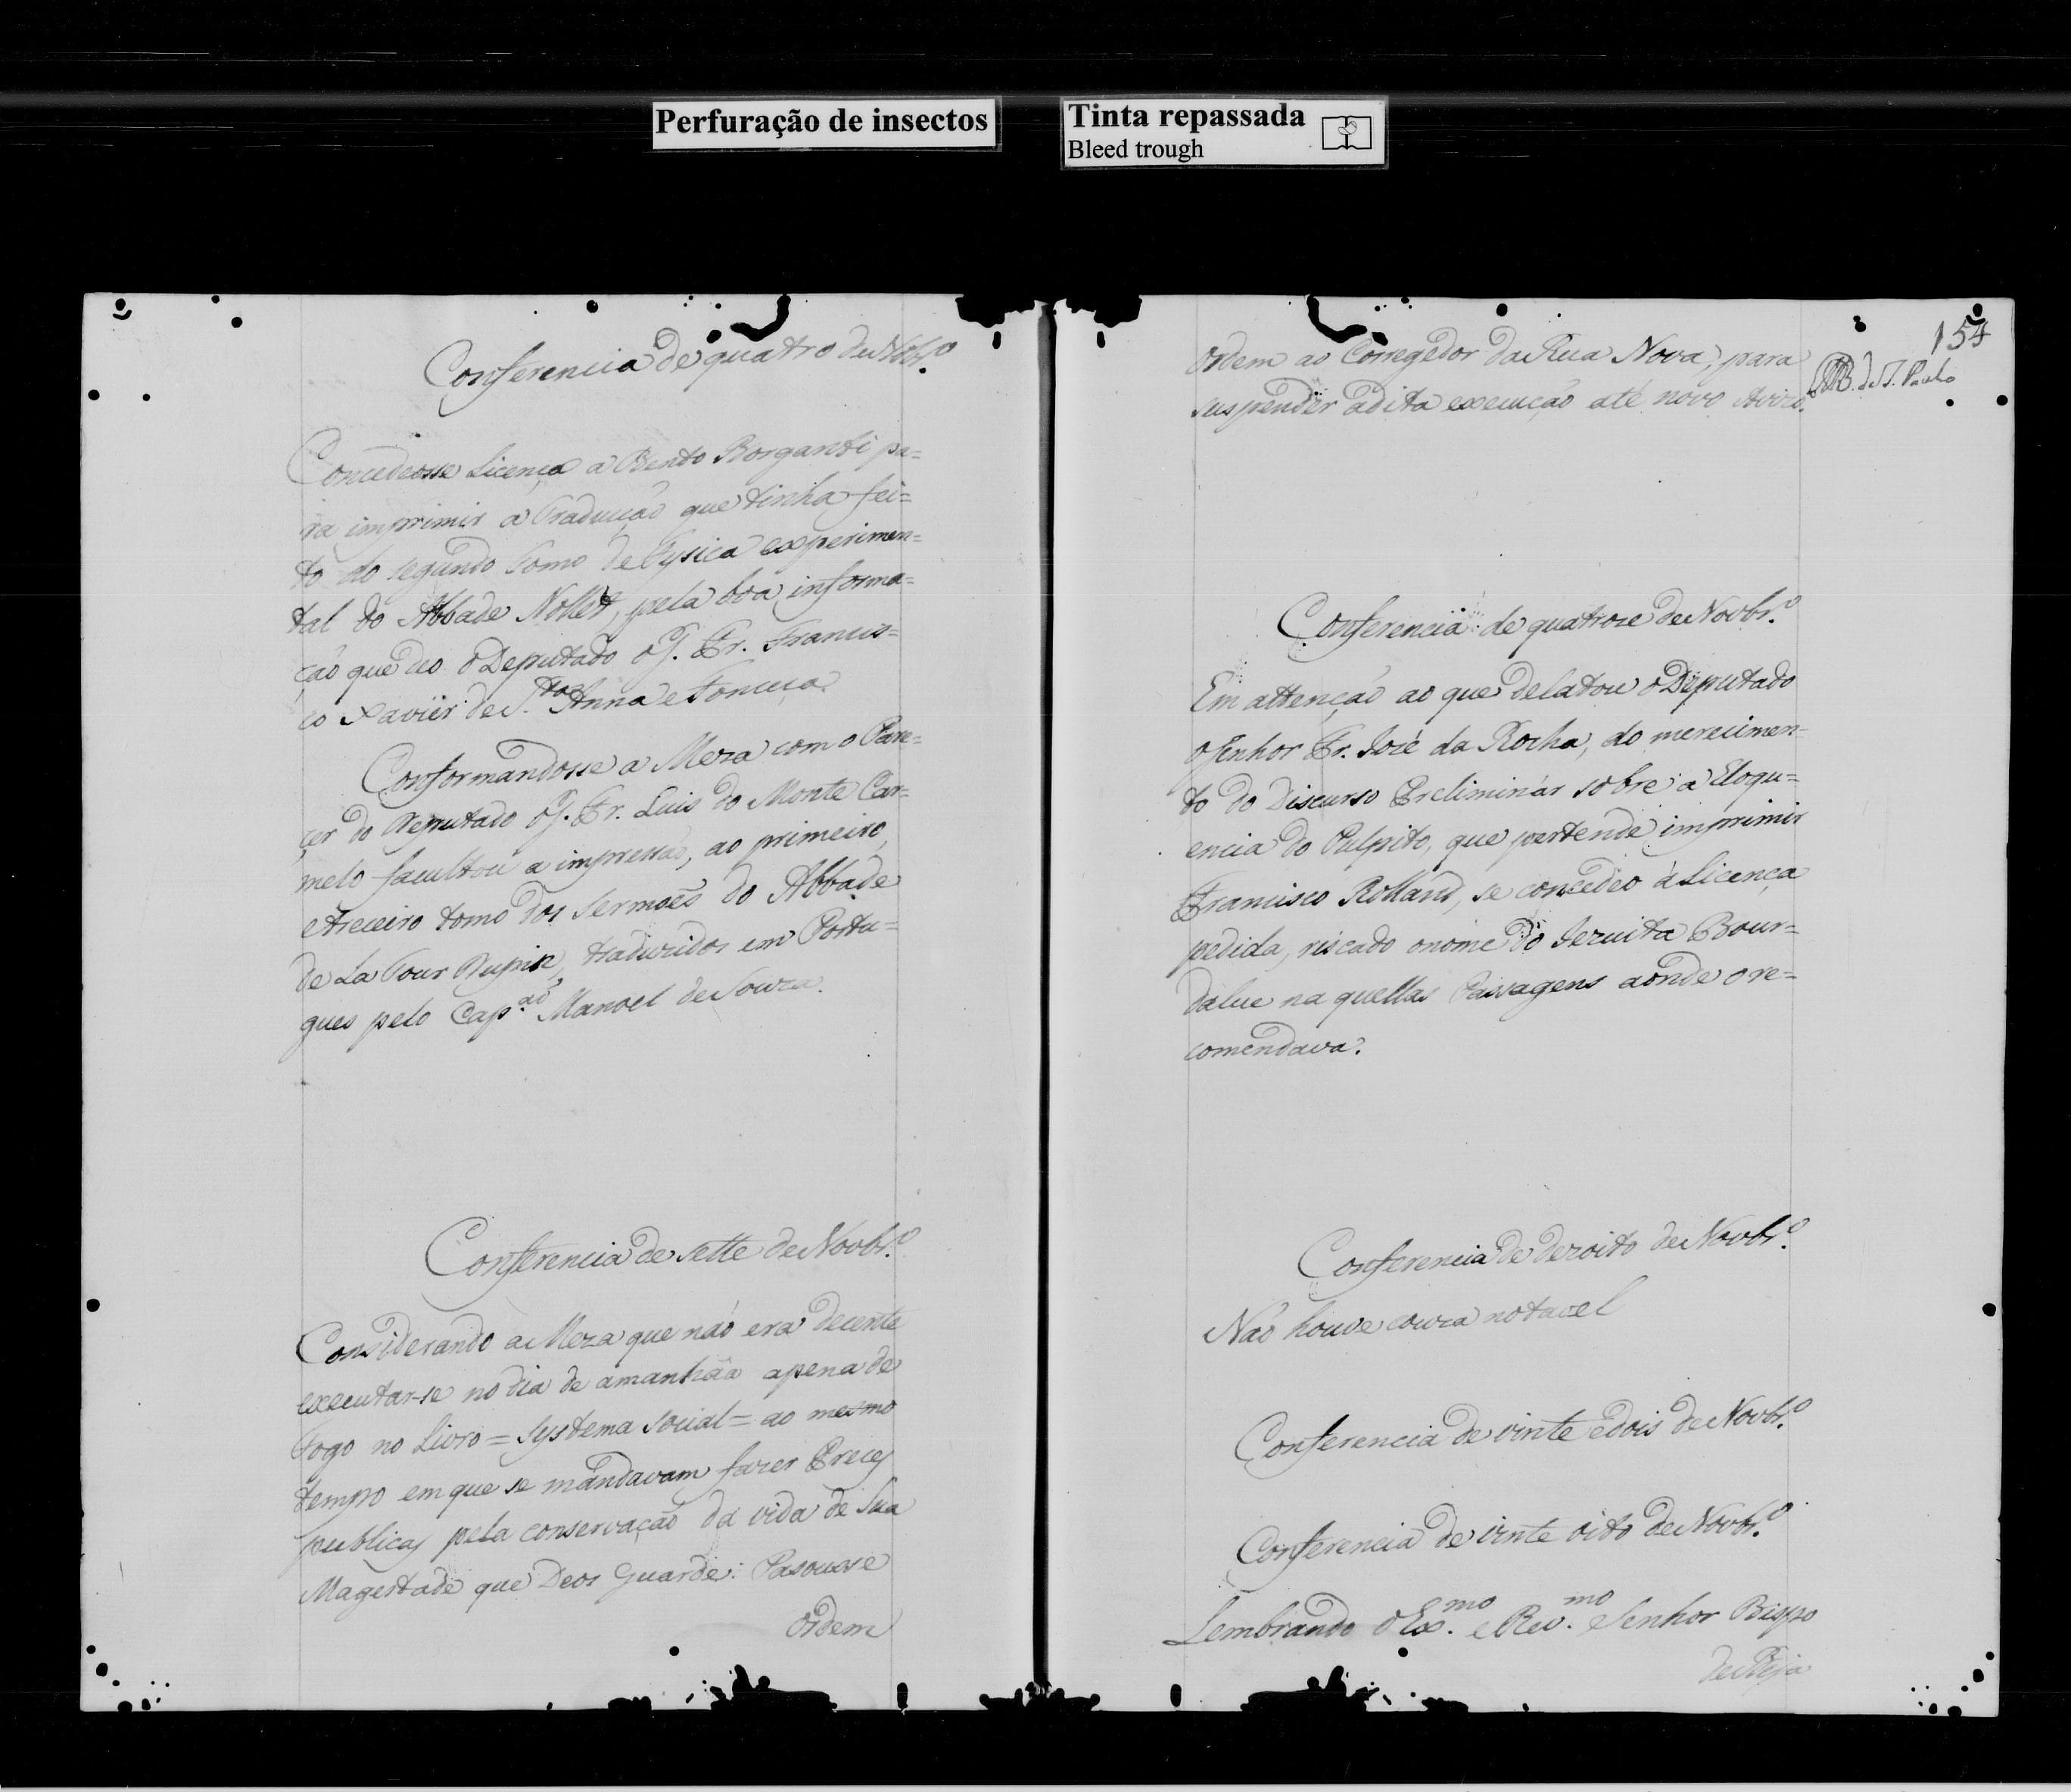 Perfuração de insectos
Tinta repassada
Bleed trough
Conferencia de quatro de Nobr.º
Concedeosse Licença a Bento Borganti pa=
ra imprimir a Traducção que tinha fei=
to do segundo Tomo de Fysica experimen=
tal do Abbade Nollet, pela boa informa=
ção que deo o Deputado o S. Fr. Francis=
co Xavier de S.ta Anna e Fonseca
Conformandosse a Meza com o Pare=
cer do Deputado o S. Fr. Luis do Monte Car=
melo facultou a impressaõ, ao primeiro,
e treceiro tomo dos Sermoẽs do Abbade
de La Tour Dupin, traduzidos em Portu=
gues pelo Cap.aõ Manoel de Souza.
Conferencia de sette de Novbr.º
Considerando a Meza que naõ era decente
executar-se no dia de amanhãa apena de
Fogo no Livro = Systema social = ao mesmo
tempo em que se mandavam fazer Preces
publicas pela conservaçaõ da vida de Sua
Magestade que Deos Guarde: Pasousse
Ordem
154
Ordem ao Corregedor da Rua Nova, para
suspender adita execuçaõ até novo Avizo.
B. de S. Paulo
Conferencia de quatroze de Novbr.º
Em attençaõ ao que delatou o Deputado
o Senhor Fr. Jozé da Rocha, do merecimen=
to do Discurso Preliminár sobre a Eloqu=
encia do Pulpito, que pertende imprimir
Francisco Rolland, se concedeo a Licença
pedida, riscado o nome do Jezuita Bour=
dalue na quellas Passagens aonde o re=
comendava.
Conferencia de dezoito de Novbr.º
Naõ houve couza notavel
Conferencia de vinte e dois de Novbr.º
Conferencia de vinte oito de Novbr.º
Lembrando o Ex.mo e Rev.mo Senhor Bispo
de Beja